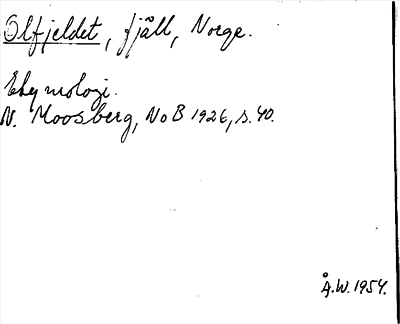 Olfjeldet, fjäll, Norge.
Etymologi.
N. Moosberg, NoB 1926, s. 40.
Å.W. 1954.